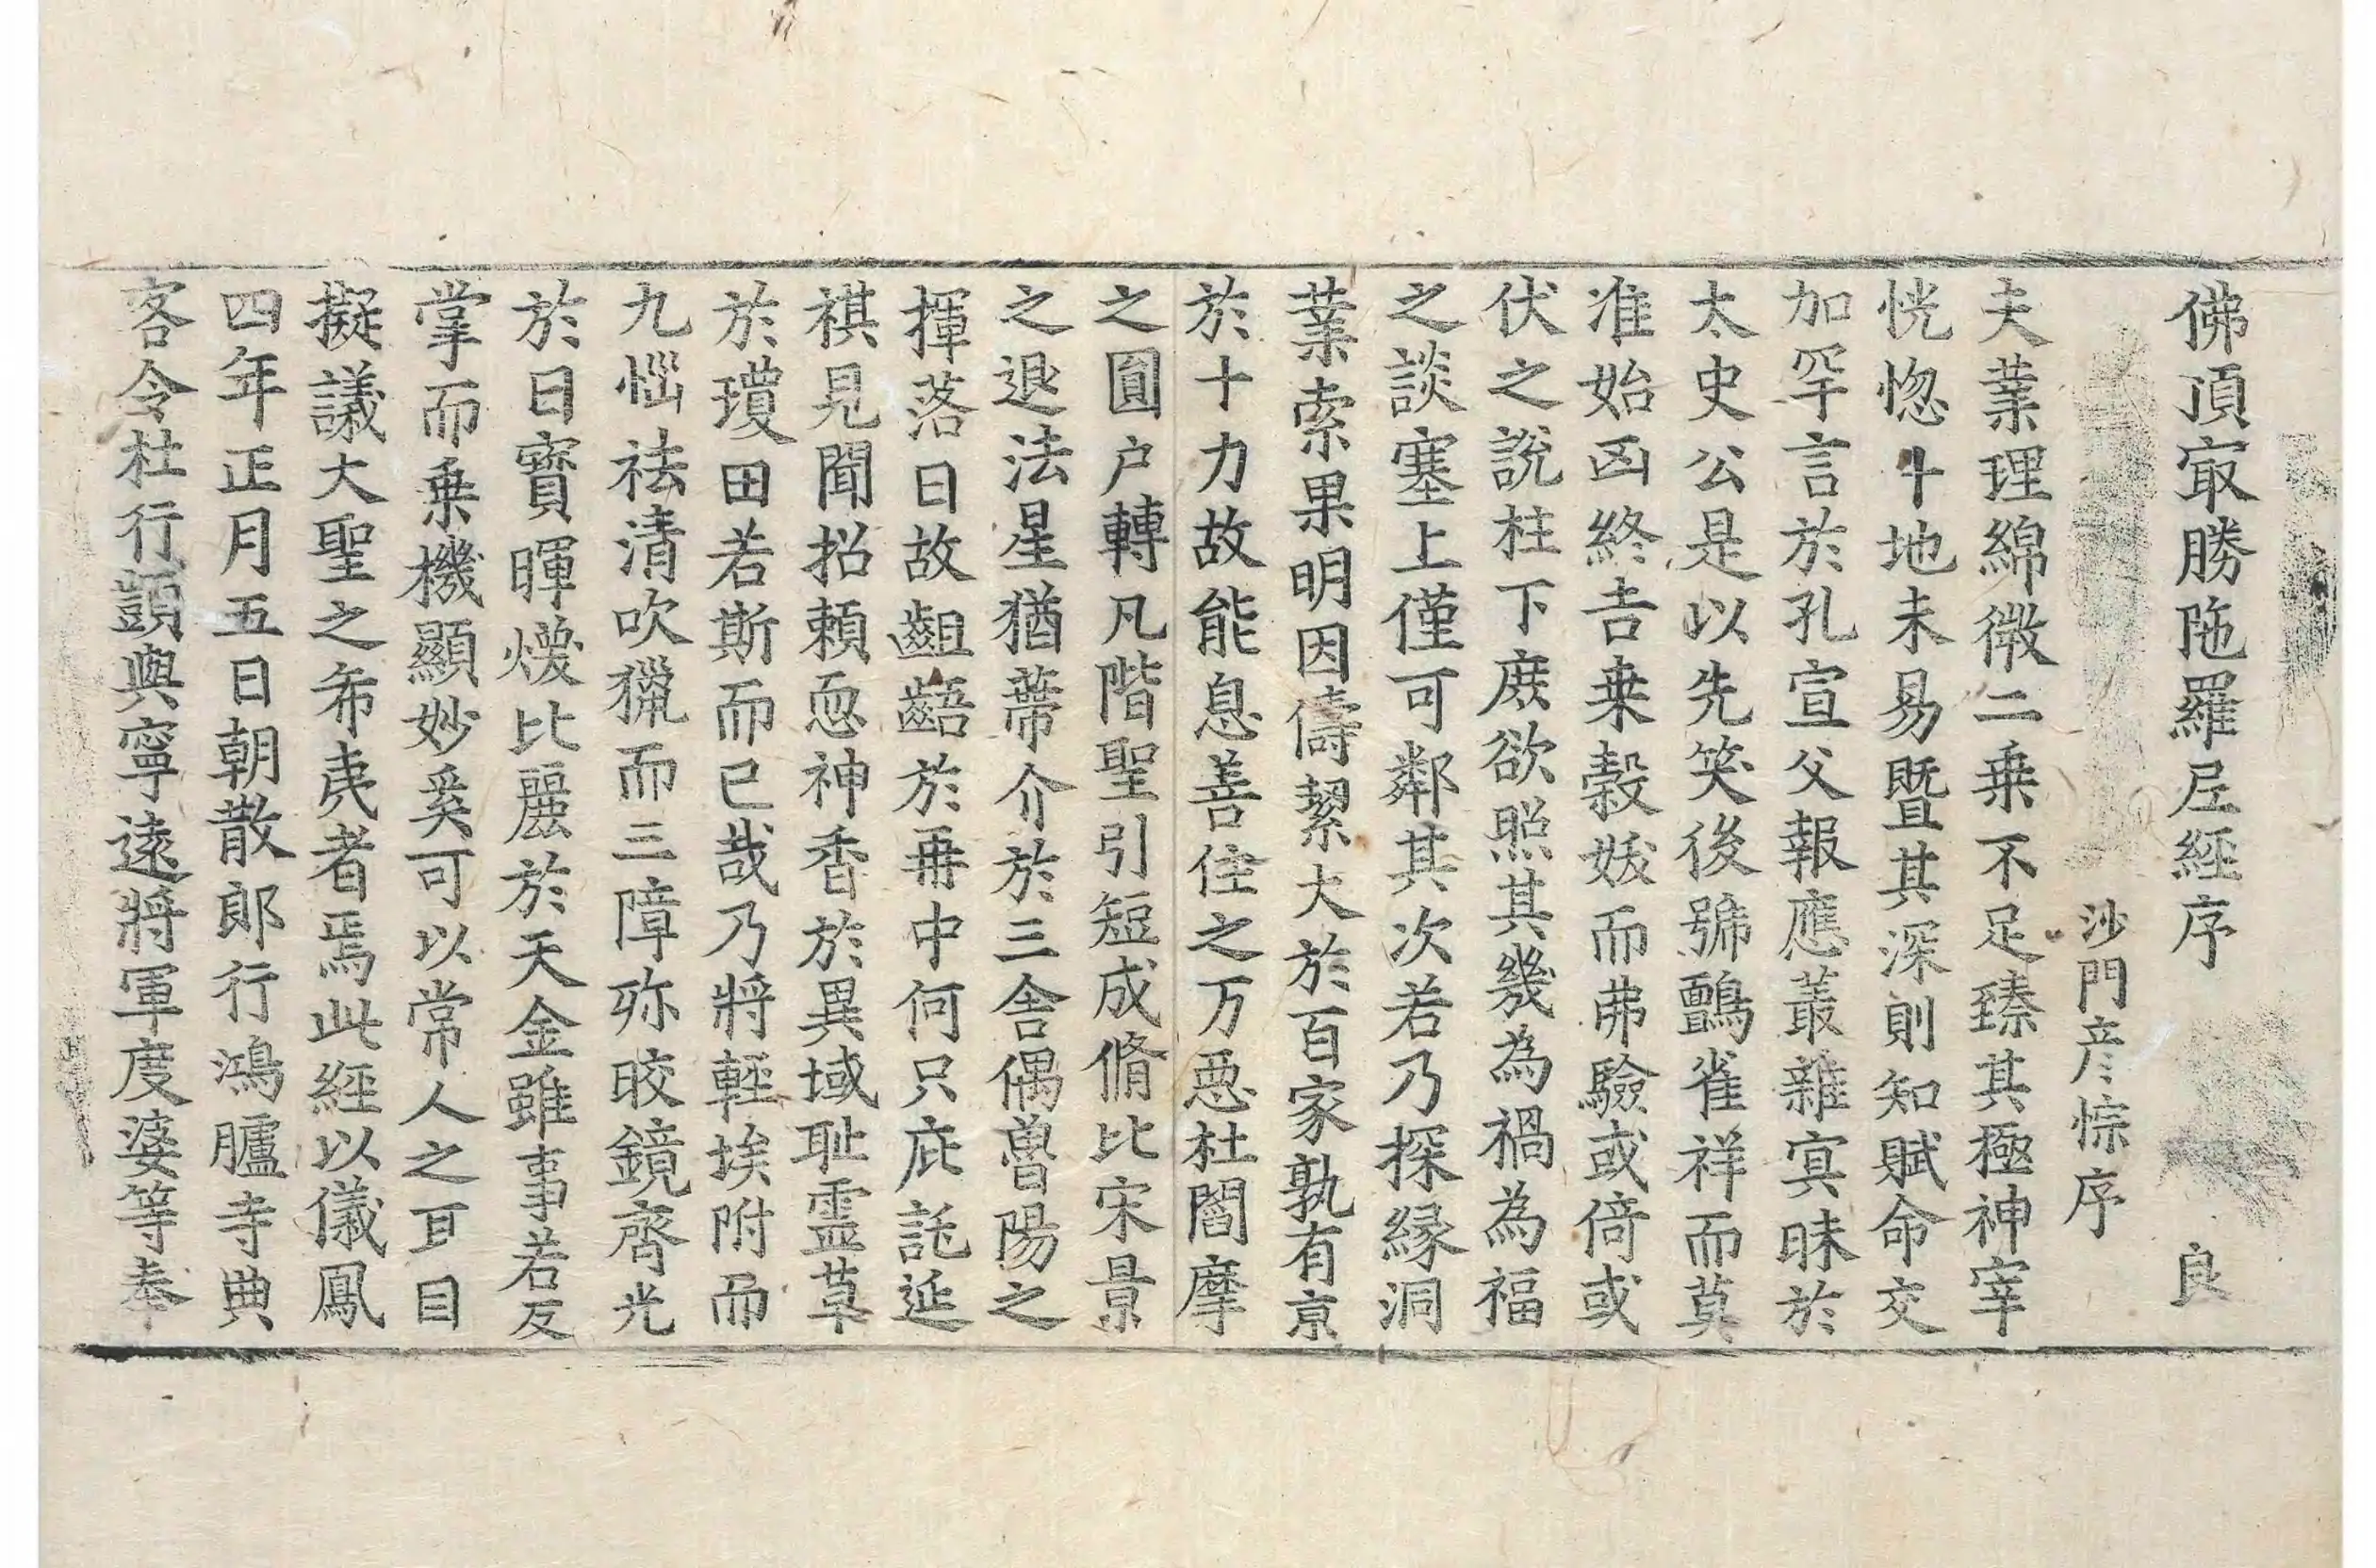 佛頂㝡勝陁羅尼經序 良
沙門彦悰序
夫業理綿微二乗不足臻其極神宰
恍惚十地未易暨其深則知賦命交
加罕言於孔宣父報應叢雜寘昧於
太史公是以先笑後號鸇雀祥而莫
准始凶終吉桒榖妖而弗驗或倚或
伏之說柱下庶欲照其幾為禍為福
之談塞上僅可鄰其次若乃探縁洞
業索果明因儔絜大於百家孰有京
於十力故能息善住之万惡杜閻摩
之圓户轉凡階聖引短成脩比宋景
之退法星猶蔕介於三舍偶魯陽之
揮落日故齟齬於冊中何只庇託延
祺見聞招頼恧神香於異域耻霊草
於瓊田若斯而已哉乃將輕埃附而
九惱祛清吹獵而三障弥晈鏡齊光
於日寳暉煖比麗於天金雖事若反
掌而乗機顯妙奚可以常人之耳目
擬議大聖之希夷者焉此經以儀鳳
四年正月五日朝散郎行鴻臚寺典
客令杜行顗與寧遠將軍度婆等奉